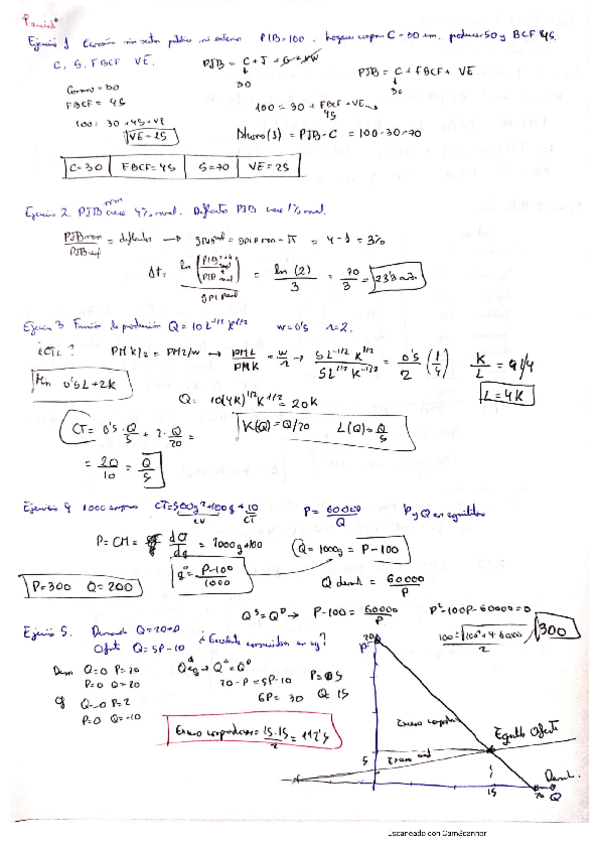 Parcial
Ejercicio 1 Economía sin sector público ni externo PIB=100. hogares compran C=30 um. producen 50 y BCF 45.
C, S, FBCF VE. PIB = C+I+G+XN PIB = C+FBCF+VE
30 30
Consumo=30
FBCF=45 100=30+FBCF+VE
45
100=30+45+VE
VE=25 Ahorro(S) = PIB-C = 100-30=70
C=30 FBCF=45 S=70 VE=25
Ejercicio 2. PIB nom crece 4% anual. Deflactor PIB crece 1% anual.
PIB nom / PIB real = deflactor → gPIB real = gPIB nom - π = 4-1=3%
Δt = ln(PIB t+1 / PIB t) / gPI real = ln(2)/3 = 70/3 = 23'3 años
Ejercicio 3 Función de producción Q=10L^1/2 K^1/2 w=0'5 r=2.
¿CTL? PMK/2 = PML/w → PML/PMK = w/r → 5L^-1/2 K^1/2 / 5L^1/2 K^-1/2 = 0'5/2 (1/4) K/L = 1/4
Min 0'5L+2K L=4K
Q= 10(4K)^1/2 K^1/2 = 20K
CT= 0'5·Q/5 + 2·Q/20 = K(Q)=Q/20 L(Q)=Q/5
= 2Q/10 = Q/5
Ejercicio 4 1000 empresas CT=500q²+100q+10 P= 60000/Q P y Q en equilibrio
CV CT
P=CM= dCT/dq = 1000q+100 Q=1000q=P-100
q°= P-100/1000
P=300 Q=200 Q demand = 60000/P
Q^S=Q^D → P-100= 60000/P P²-100P-60000=0
Ejercicio 5. Demanda Q=20-P ¿Excedente consumidores en eq?
Oferta Q=5P-10
300
Dem Q=0 P=20 Q^D=Q^S
P=0 Q=20 20-P=5P-10 P=5
6P=30 Q=15
Of Q=0 P=2
P=0 Q=-10
Exceso compradores = 15·15/2 = 112'5
20
P
Exceso comprador
Equilib Oferta
5
Exceso vend
Demand.
15
20 Q
Escaneado con CamScanner